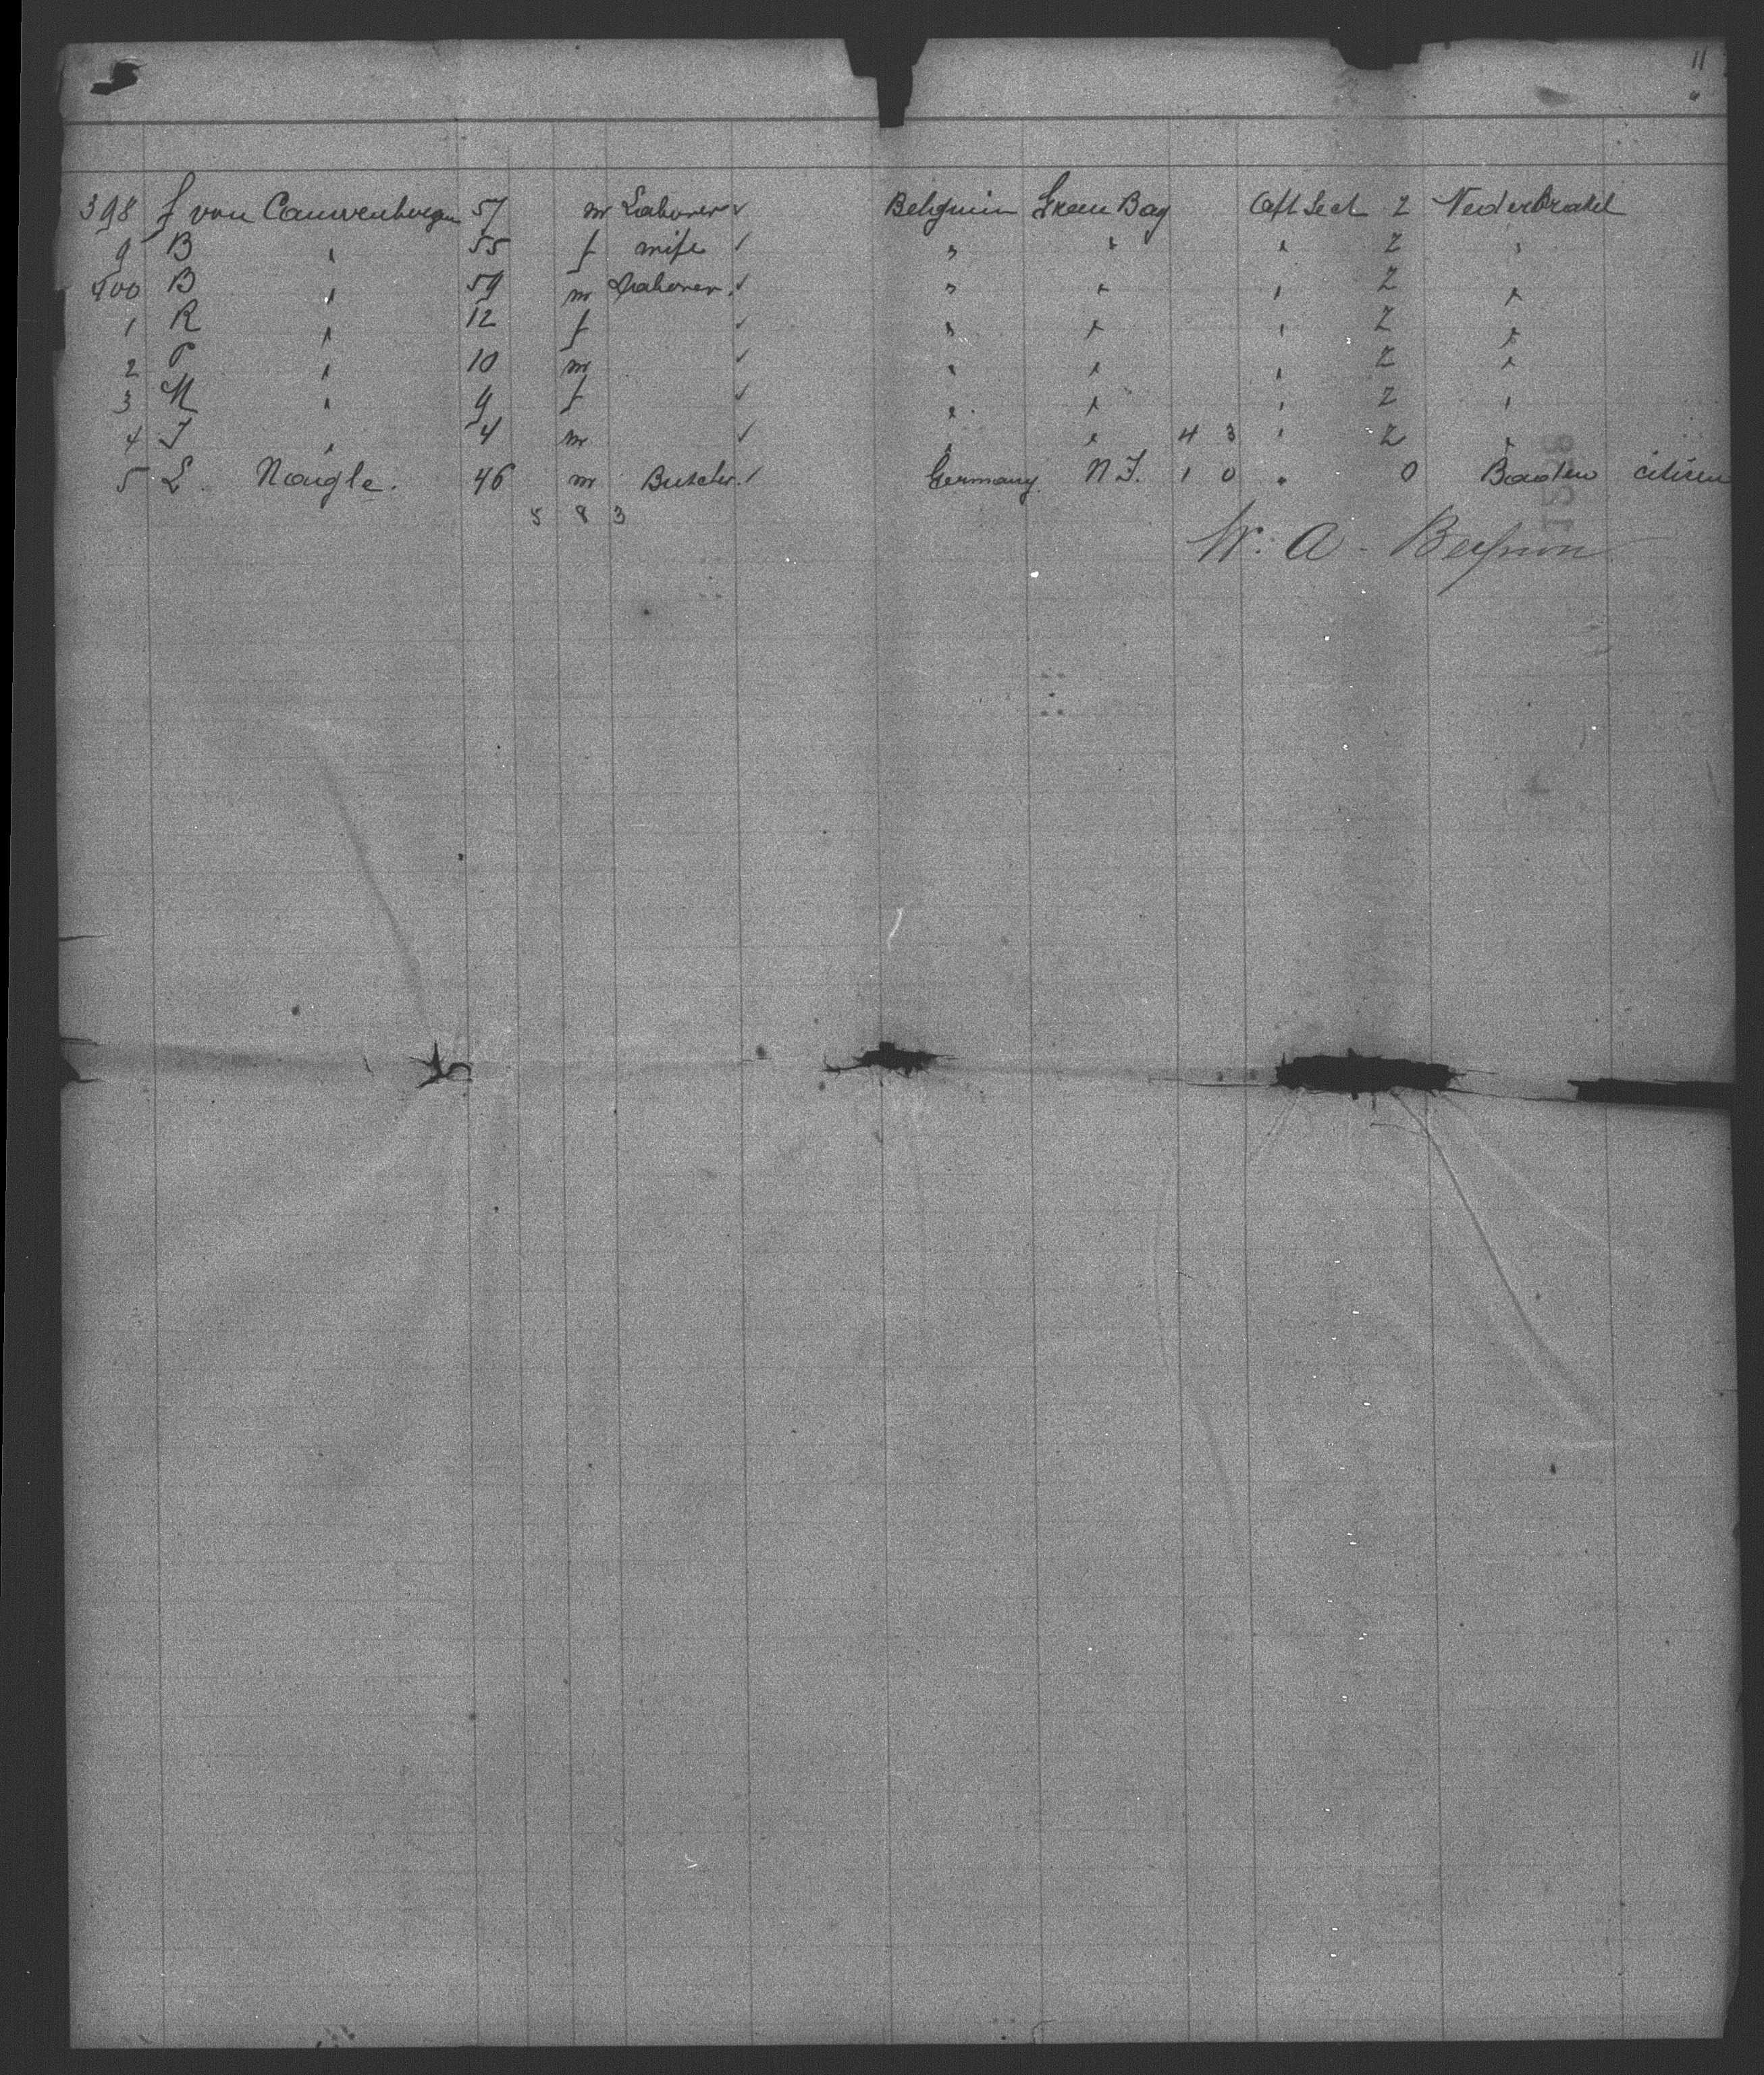 11
398 J van Cauwenbergen 57 m Laborer ✓ Belgium Green Bay Aft Sect 2 Nederbrakel
9 B " 55 f wife ✓ " " " 2 "
400 B " 59 m Laborer ✓ " " " 2 "
1 R " 12 f ✓ " " " 2 "
2 P " 10 m ✓ " " " 2 "
3 M " 9 f ✓ " " " 2 "
4 J " 4 m ✓ " " 4 3 " 2 "
5 L. Naigle. 46 m Butcher. ✓ Germany. N.J. 1 0 " 0 Baden citizen
5 8 3
W. A.